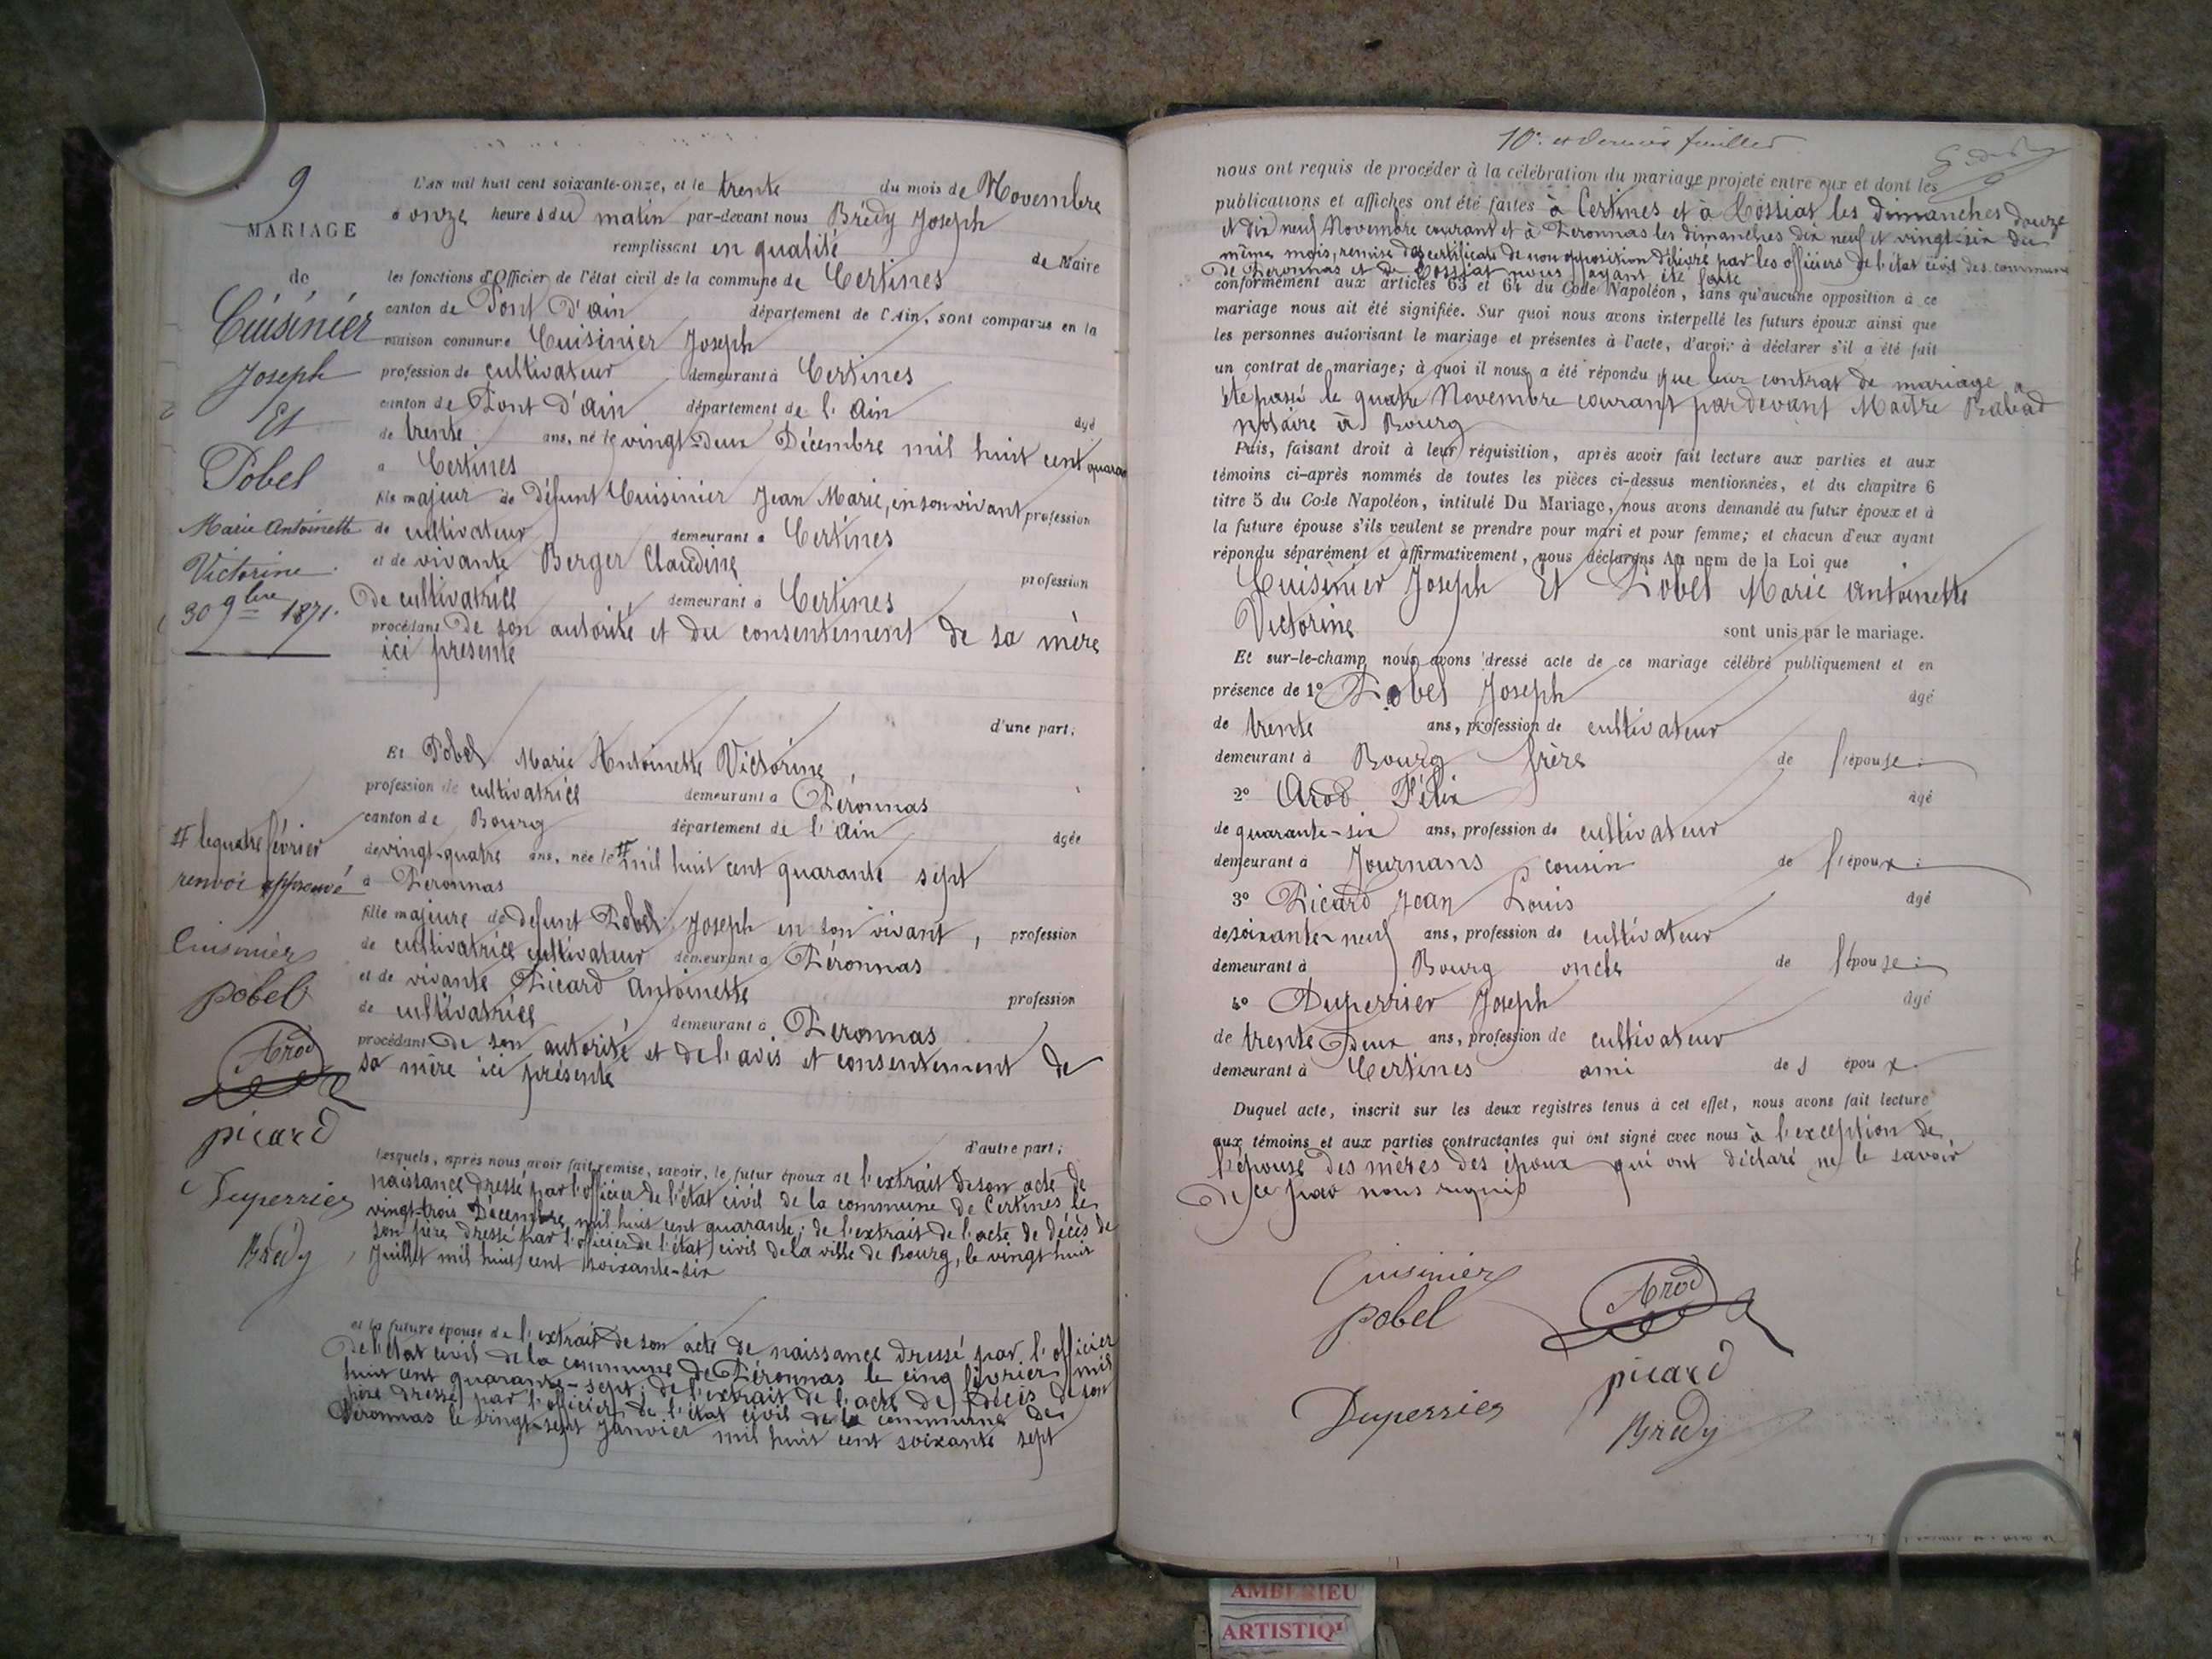 9
MARIAGE
de
Cuisinier
Joseph
Et
Pobel
Marie Antoinette
Victorine
30 9bre 1871.
# le quatre février
renvoi approuvé
Cuisinier
pobel
Arod
picard
Duperrier
Brédy
L'an mil huit cent soixante-onze, et le trente du mois de Novembre
à onze heures du matin par-devant nous Brédy Joseph
remplissant en qualité de Maire
les fonctions d'Officier de l'état civil de la commune de Certines
canton de Pont D'ain département de l'Ain, sont comparus en la
maison commune Cuisinier Joseph
profession de cultivateur demeurant à Certines
canton de Pont d'ain département de l'Ain âgé
de trente ans, né le vingt-deux Décembre mil huit cent quaran
à Certines
fils majeur de défunt Cuisinier Jean Marie, en son vivant profession
de cultivateur demeurant à Certines
et de vivante Berger Claudine profession
De cultivatrice demeurant à Certines
procédant De son autorité et du consentement de sa mère
ici présente
d'une part;
Et Pobel Marie Antoinette Victorine
profession de cultivatrice demeurant à Péronnas
canton de Bourg département de l'ain âgée
de vingt-quatre ans, née le # mil huit cent quarante sept
à Péronnas
fille majeure de defunt Pobel Joseph en son vivant, profession
de cultivatrice cultivateur demeurant à Péronnas
et de vivante Picard Antoinette profession
de cultivatrice demeurant à Peronnas
procédant de son autorité et de l'avis et consentement de
sa mère ici présente
d'autre part;
Lesquels, après nous avoir fait remise, savoir, le futur époux de l'extrait de son acte de
naissance dressé par l'officier de l'état civil de la commune de Certines le
vingt-trois Décembre mil huit cent quarante; de l'extrait de l'acte de décès de
son père dressé par l'officier de l'état civil de la ville de Bourg, le vingt huit
Juillet mil huit cent soixante-six
et la future épouse de l'extrait de son acte de naissance dressé par l'officier
De l'état civil de la commune de Péronnas le cinq février mil
huit cent quarante-sept; de l'extrait de l'acte de décès de son
père dressé par l'officier de l'état civil de la commune de
Péronnas le vingt-sept Janvier mil huit cent soixante sept
10e et dernier feuillet
nous ont requis de procéder à la célébration du mariage projeté entre eux et dont les
publications et affiches ont été faites à Certines et à Tossiat les dimanches douze
et dix neuf Novembre courant et à Peronnas les dimanches dix neuf et vingt-six du
même mois, remise des certificats de non opposition délivré par les officiers de l'état civil des communes
de Peronnas et de Tossiat nous ayant été faite
conformément aux articles 63 et 64 du Code Napoléon, sans qu'aucune opposition à ce
mariage nous ait été signifiée. Sur quoi nous avons interpellé les futurs époux ainsi que
les personnes autorisant le mariage et présentes à l'acte, d'avoir à déclarer s'il a été fait
un contrat de mariage; à quoi il nous a été répondu que leur contrat de mariage a
été passé le quatre Novembre courant par devant Maitre
notaire à Bourg
Puis, faisant droit à leur réquisition, après avoir fait lecture aux parties et aux
témoins ci-après nommés de toutes les pièces ci-dessus mentionnées, et du chapitre 6
titre 5 du Code Napoléon, intitulé Du Mariage, nous avons demandé au futur époux et à
la future épouse s'ils veulent se prendre pour mari et pour femme; et chacun d'eux ayant
répondu séparément et affirmativement, nous déclarons Au nom de la Loi que
Cuisinier Joseph Et Pobel Marie Antoinette
Victorine
sont unis par le mariage.
Et sur-le-champ nous avons dressé acte de ce mariage célébré publiquement et en
présence de 1º Pobel Joseph âgé
de trente ans, profession de cultivateur
demeurant à Bourg frère de l'épouse:
2º Arod Félix âgé
de quarante-six ans, profession de cultivateur
demeurant à Journans cousin de l'époux:
3º Picard Jean Louis âgé
de soixante-neuf ans, profession de cultivateur
demeurant à Bourg oncle de l'épouse:
4º Duperrier Joseph âgé
de trente Deux ans, profession de cultivateur
demeurant à Certines ami de l'époux.
Duquel acte, inscrit sur les deux registres tenus à cet effet, nous avons fait lecture
aux témoins et aux parties contractantes qui ont signé avec nous à l'exception de
l'épouse des mères des époux qui ont déclaré ne le savoir
De ce par nous requis
Cuisinier
pobel
Arod
picard
Duperrier
Brédy
AMBERIEU
ARTISTIQ